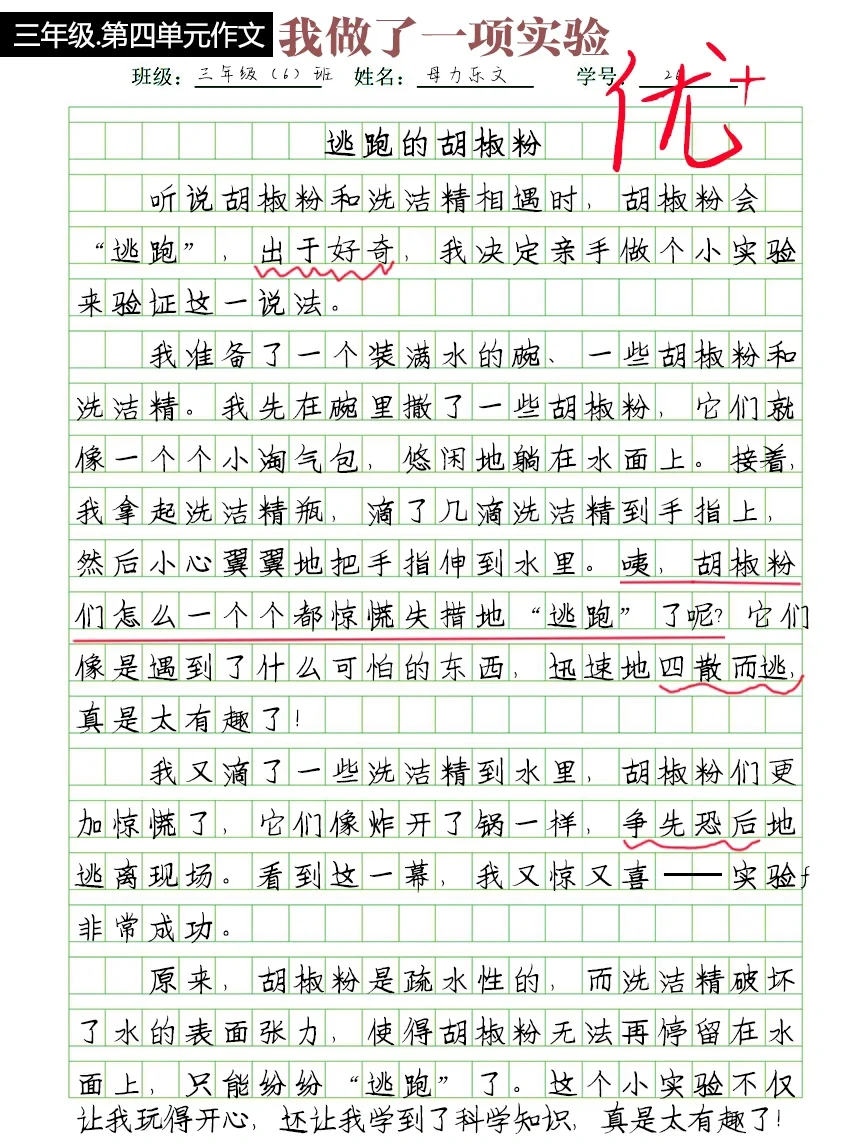 三年级.第四单元作文 我做了一项实验
班级：三年级（6）班 姓名：母力乐文 学号：
优+
逃跑的胡椒粉
听说胡椒粉和洗洁精相遇时，胡椒粉会
“逃跑”，出于好奇，我决定亲手做个小实验
来验证这一说法。
我准备了一个装满水的碗、一些胡椒粉和
洗洁精。我先在碗里撒了一些胡椒粉，它们就
像一个个小淘气包，悠闲地躺在水面上。接着，
我拿起洗洁精瓶，滴了几滴洗洁精到手指上，
然后小心翼翼地把手指伸到水里。咦，胡椒粉
们怎么一个个都惊慌失措地“逃跑”了呢？它们
像是遇到了什么可怕的东西，迅速地四散而逃，
真是太有趣了！
我又滴了一些洗洁精到水里，胡椒粉们更
加惊慌了，它们像炸开了锅一样，争先恐后地
逃离现场。看到这一幕，我又惊又喜——实验f
非常成功。
原来，胡椒粉是疏水性的，而洗洁精破坏
了水的表面张力，使得胡椒粉无法再停留在水
面上，只能纷纷“逃跑”了。这个小实验不仅
让我玩得开心，还让我学到了科学知识，真是太有趣了！